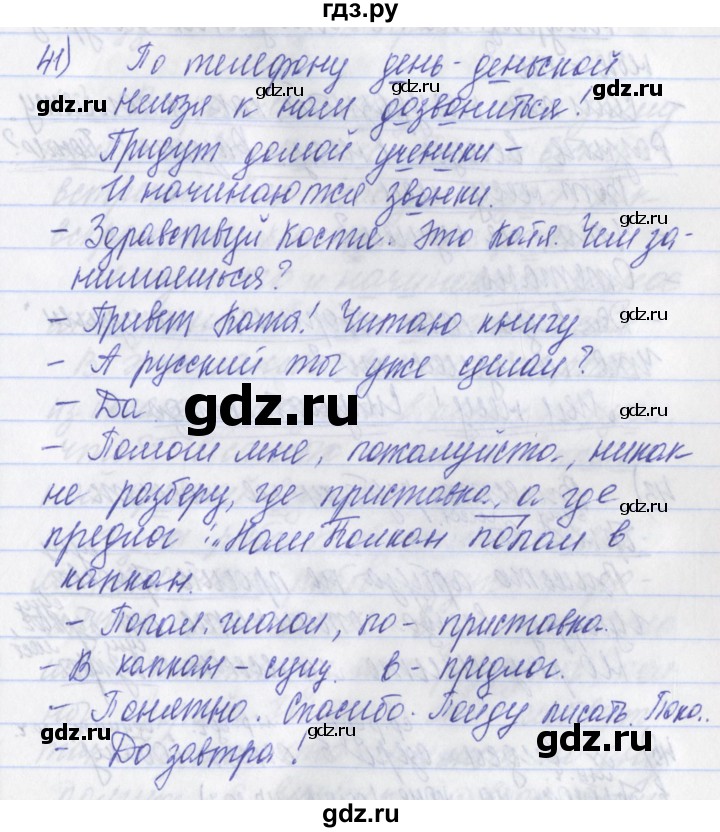 гдз.ру
41) По телефону день-деньской
Нельзя к нам дозвониться!
Придут домой ученики –
И начинаются звонки.
– Здравствуй Костя. Это Катя. Чем за-
нимаешься?
– Привет Катя! Читаю книгу
– А русский ты уже сделал?
– Да.
– Помоги мне, пожалуйста, никак
не разберу, где приставка, а где
предлог: „Наш Полкан попал в
капкан.
– Попал. глагол, по- приставка.
– В капкан – сущ. в – предлог.
– Понятно. Спасибо. Пойду писать. Пока.
– До завтра!
gdz.ru
gdz.ru
gdz.ru
gdz.ru
gdz.ru
gdz.ru
gdz.ru
gdz.ru
gdz.ru
gdz.ru
gdz.ru
gdz.ru
gdz.ru
gdz.ru